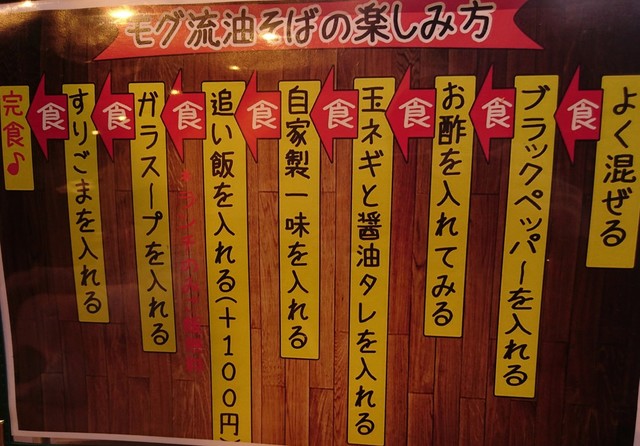 モグ流油そばの楽しみ方
よく混ぜる
食
ブラックペッパーを入れる
食
お酢を入れてみる
食
玉ネギと醤油タレを入れる
食
自家製一味を入れる
食
追い飯を入れる(+100円)
食
ガラスープを入れる
食
すりごまを入れる
食
完食♪